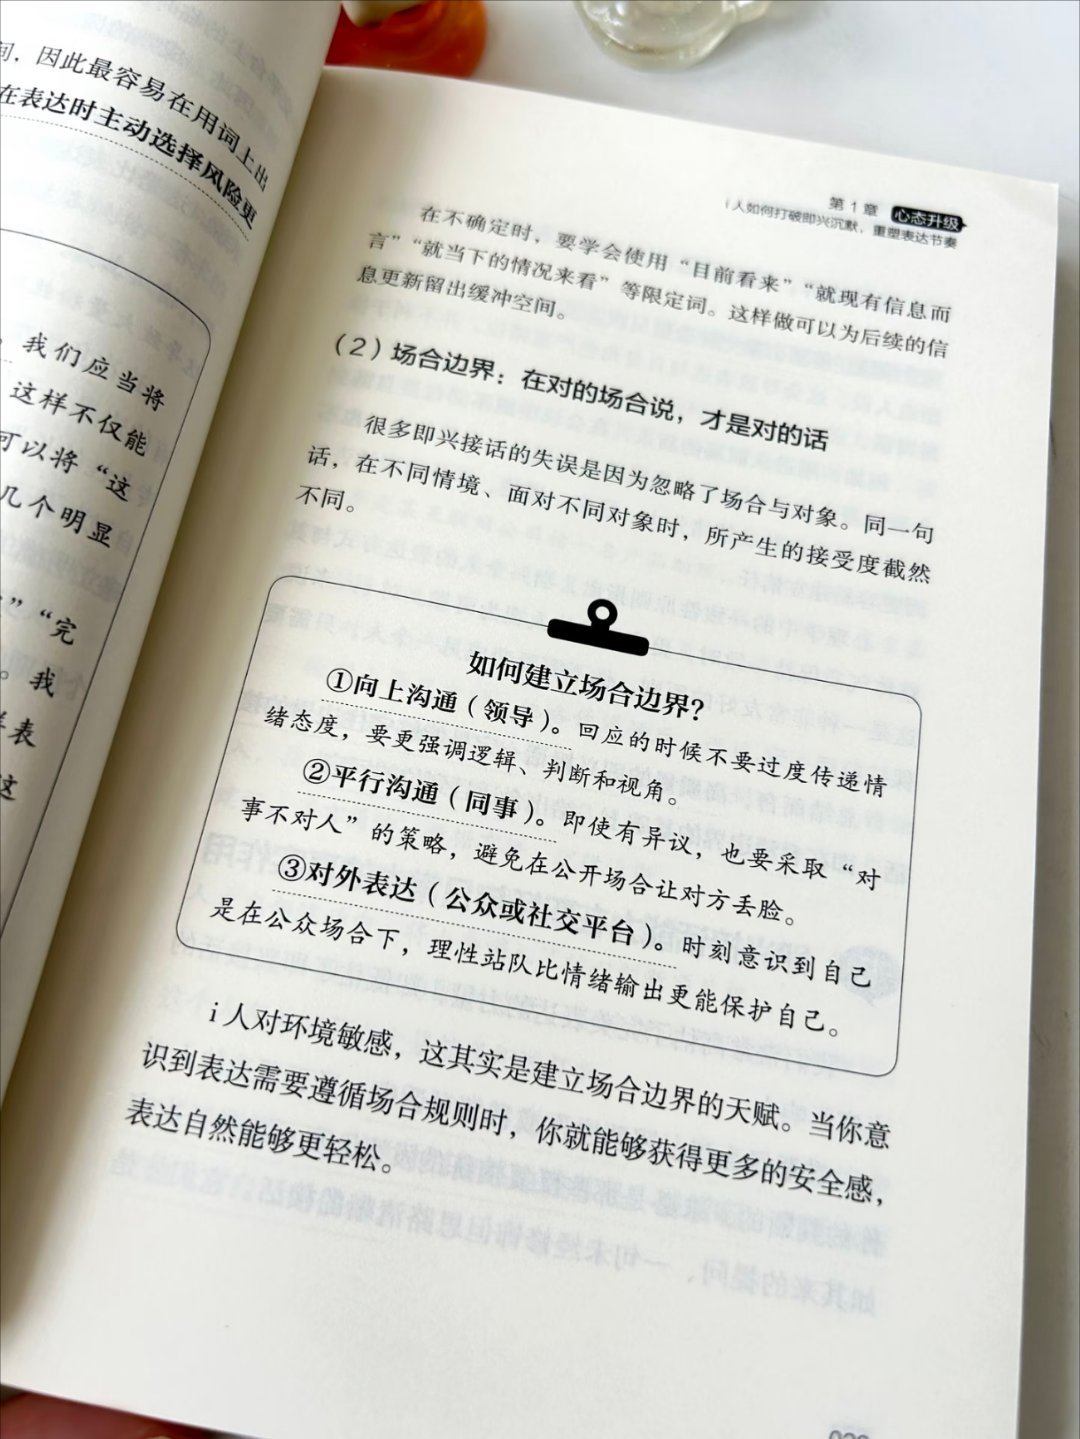 间，因此最容易在用词上出
在表达时主动选择风险更
。我们应当将
这样不仅能
可以将“这
几个明显
”“完
。我
样表
这
第1章 心态升级
i人如何打破即兴沉默，重塑表达节奏
在不确定时，要学会使用“目前看来”“就现有信息而
言”“就当下的情况来看”等限定词。这样做可以为后续的信
息更新留出缓冲空间。
（2）场合边界：在对的场合说，才是对的话
很多即兴接话的失误是因为忽略了场合与对象。同一句
话，在不同情境、面对不同对象时，所产生的接受度截然
不同。
如何建立场合边界？
①向上沟通（领导）。回应的时候不要过度传递情
绪态度，要更强调逻辑、判断和视角。
②平行沟通（同事）。即使有异议，也要采取“对
事不对人”的策略，避免在公开场合让对方丢脸。
③对外表达（公众或社交平台）。时刻意识到自己
是在公众场合下，理性站队比情绪输出更能保护自己。
i人对环境敏感，这其实是建立场合边界的天赋。当你意
识到表达需要遵循场合规则时，你就能够获得更多的安全感，
表达自然能够更轻松。